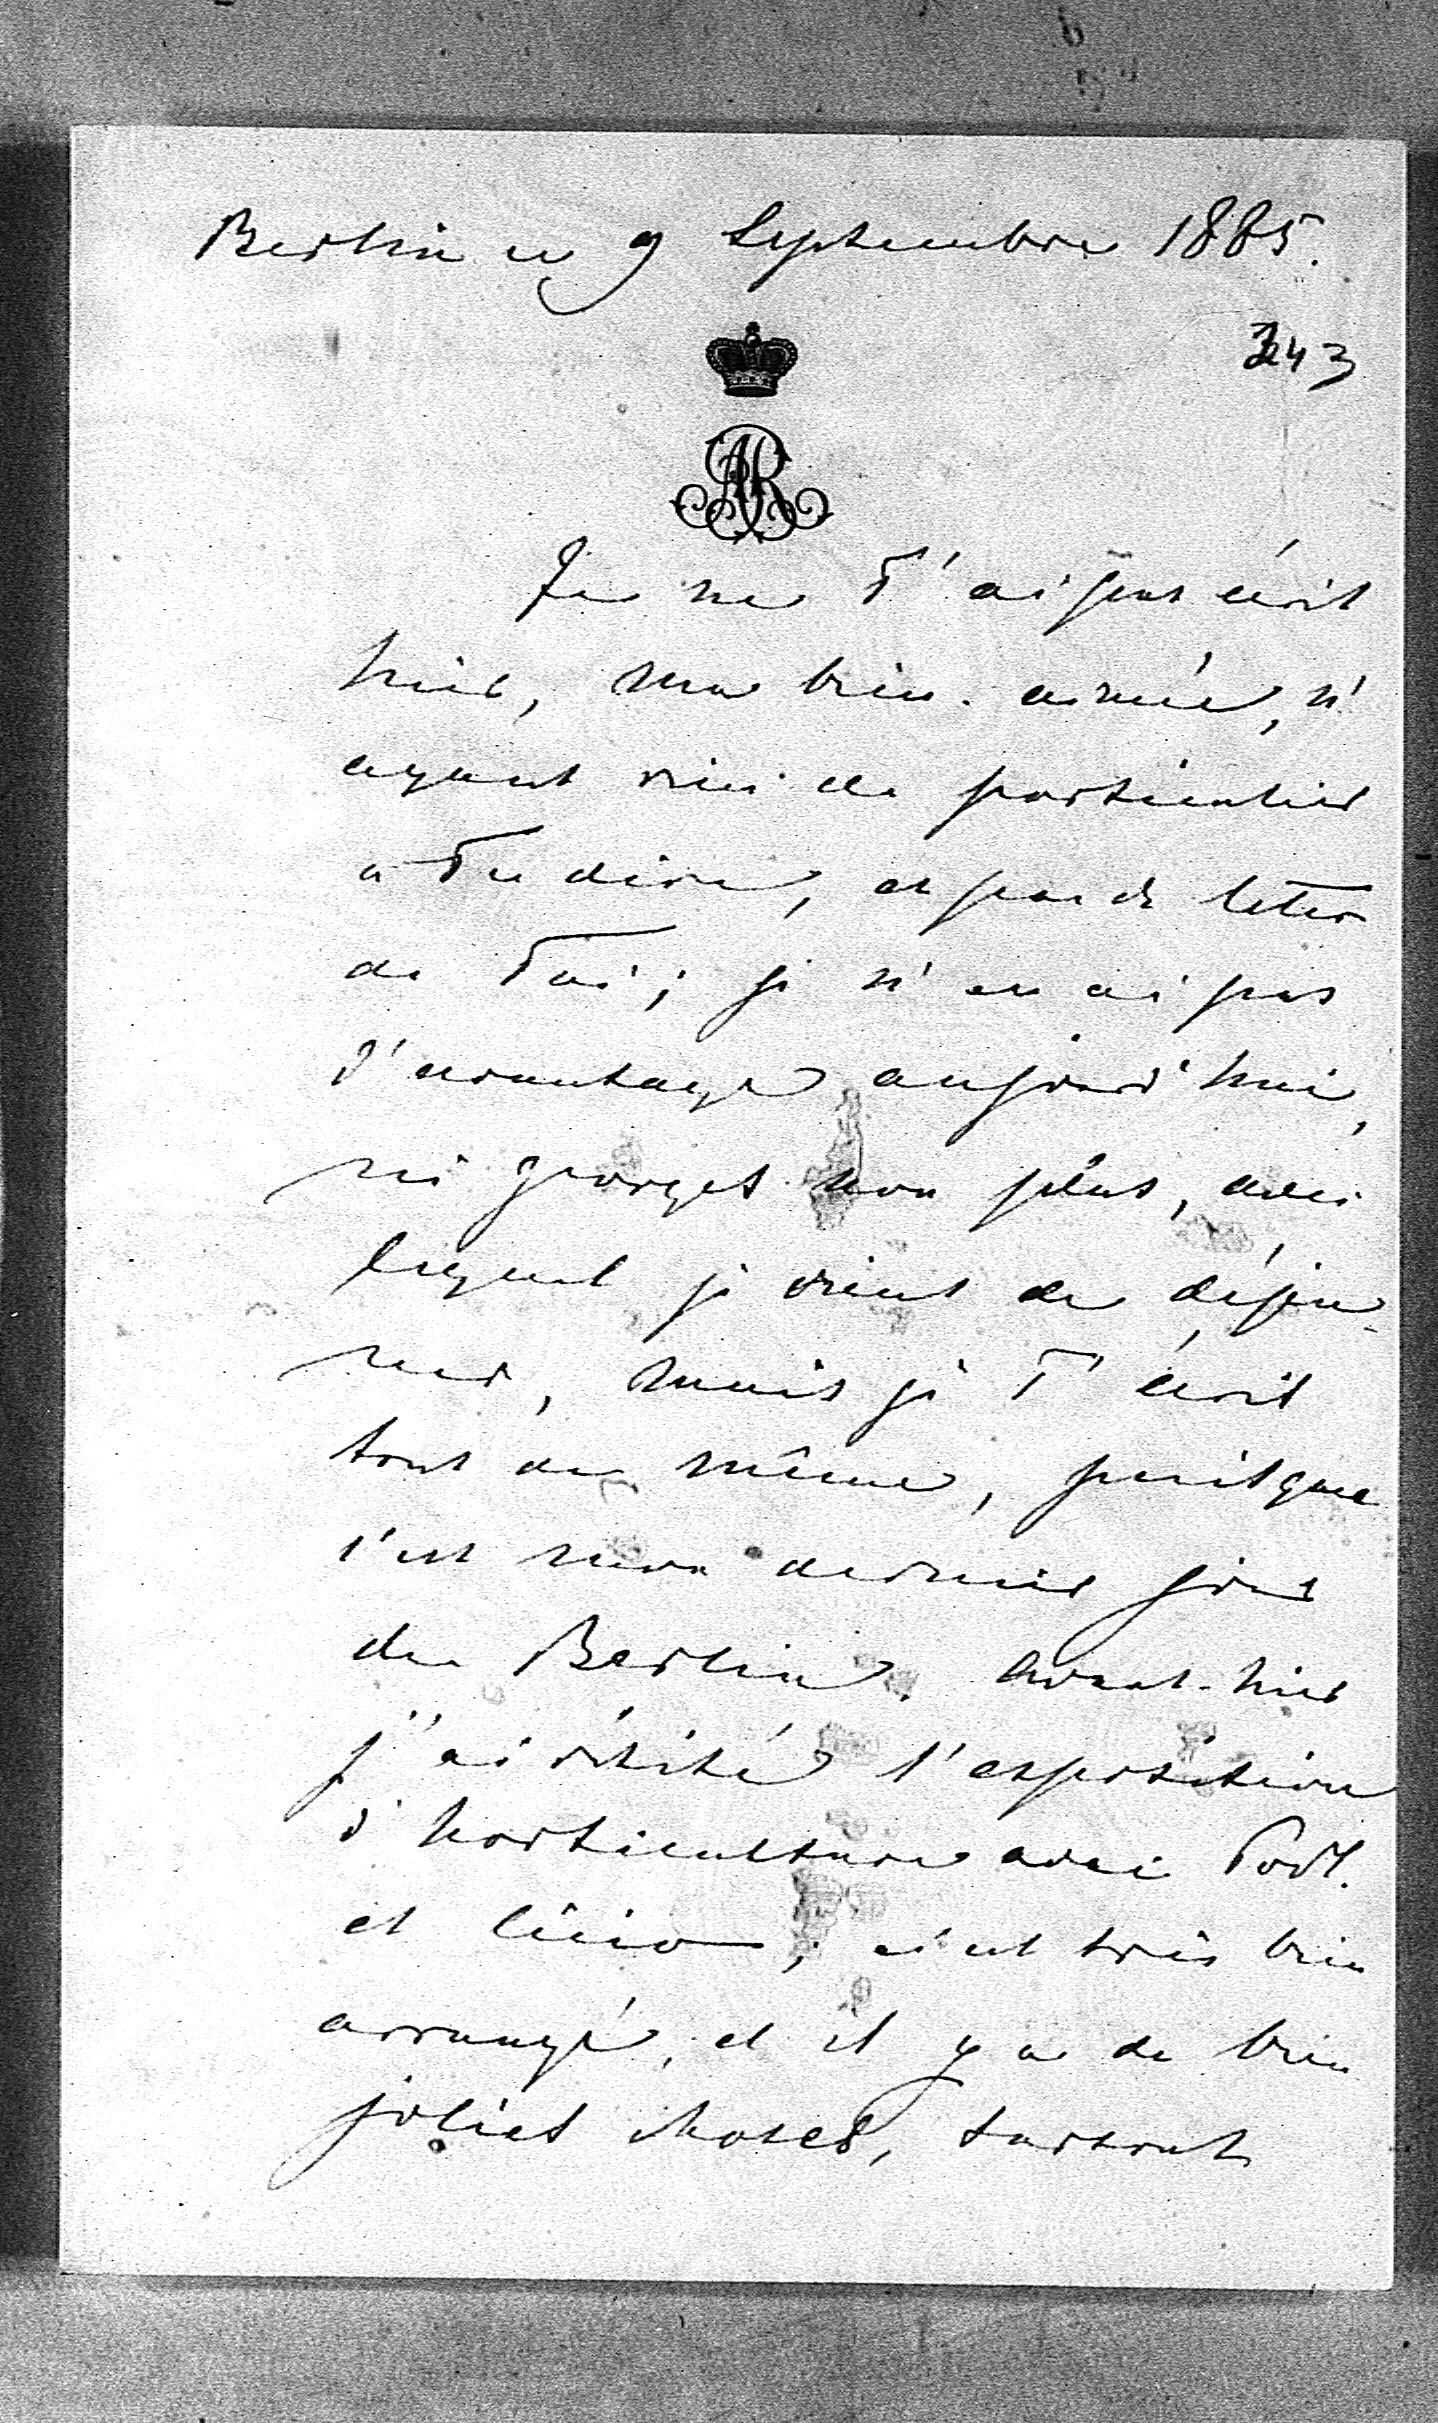 Berlin le 9 Septembre 1885.
343
AR
Je ne T'ai pas écrit
hier, ma bien-aimée, n'
ayant rien de particulier
à Te dire, et pas de lettre
de Toi; je n'en ai pas
d'avantage aujourd'hui,
ni Georges non plus, avec
lequel je viens de déjeu-
ner, mais je T'écris
tout de même, puisque
c'est mon dernier jour
de Berlin. Avant-hier
j'ai visité l'exposition
d'horticulture avec
et ; c'est très bien
arrangé, et il y a de bien
jolies choses, surtout